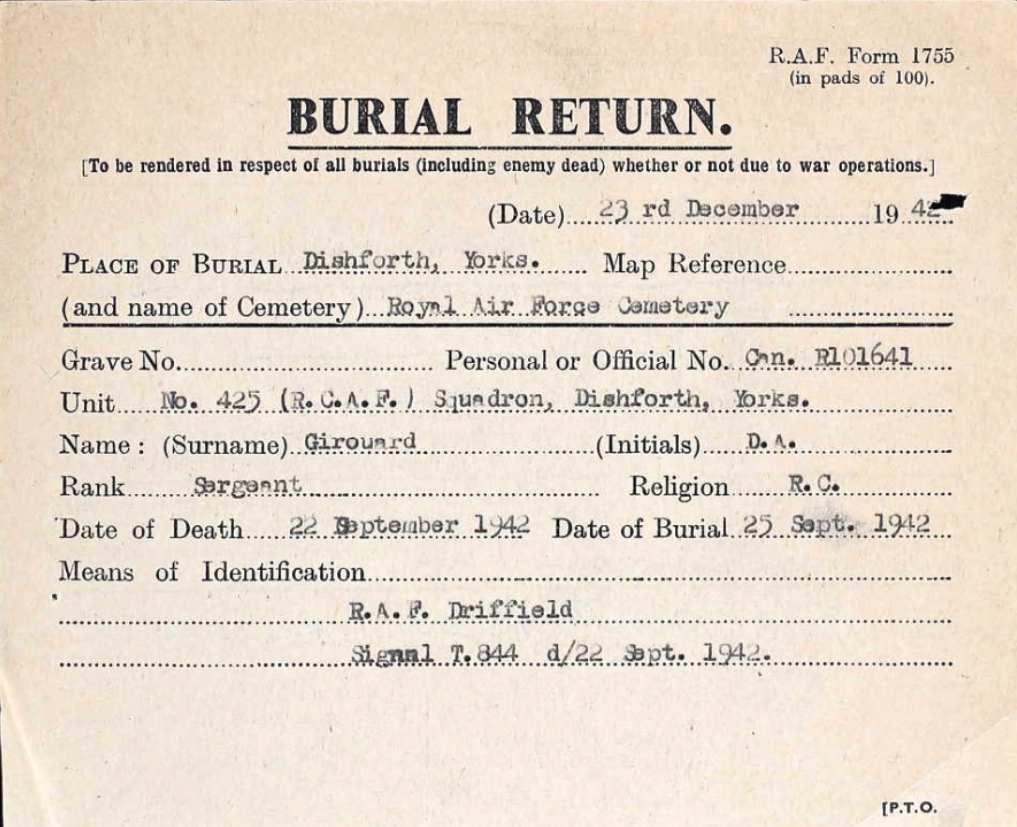 R.A.F. Form 1755
(in pads of 100).
BURIAL RETURN.
[To be rendered in respect of all burials (including enemy dead) whether or not due to war operations.]
(Date) 23 rd December 19 42
PLACE OF BURIAL Dishforth, Yorks. Map Reference
(and name of Cemetery) Royal Air Force Cemetery
Grave No. Personal or Official No. Can. R101641
Unit No. 425 (R.C.A.F.) Squadron, Dishforth, Yorks.
Name: (Surname) Girouard (Initials) D.A.
Rank Sergeant Religion R.C.
Date of Death 22 September 1942 Date of Burial 25 Sept. 1942
Means of Identification
R.A.F. Driffield
Signal T.844 d/22 Sept. 1942.
[P.T.O.